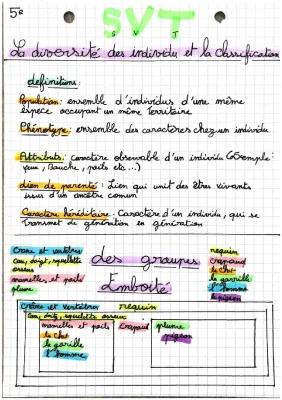 5e
SVT
S V T
La diversité des individu et la classification
définitions :
Population : ensemble d'individus d'une même
espèce occupant un même territoire
Phénotype : ensemble des caractères chez un individu
Attributs : caractère observable d'un individu (Exemple :
yeux, Bouche, poils etc...)
Lien de parenté : Lien qui unit des êtres vivants
issus d'un ancêtre comun
Caractère héréditaire : Caractère d'un individu, qui se
transmet de génération en génération
Crane et vertèbre
Cou, doigt, squelette
osseux
mamelles et poils
plume
des groupes
Emboité
requin
crapaud
le chat
le gorille
l'homme
le pigeon
crâne et vertèbre requin
Cou, doigts, squelette osseux
mamelles et poils crapaud plume
le chat pigeon
le gorille
l'homme